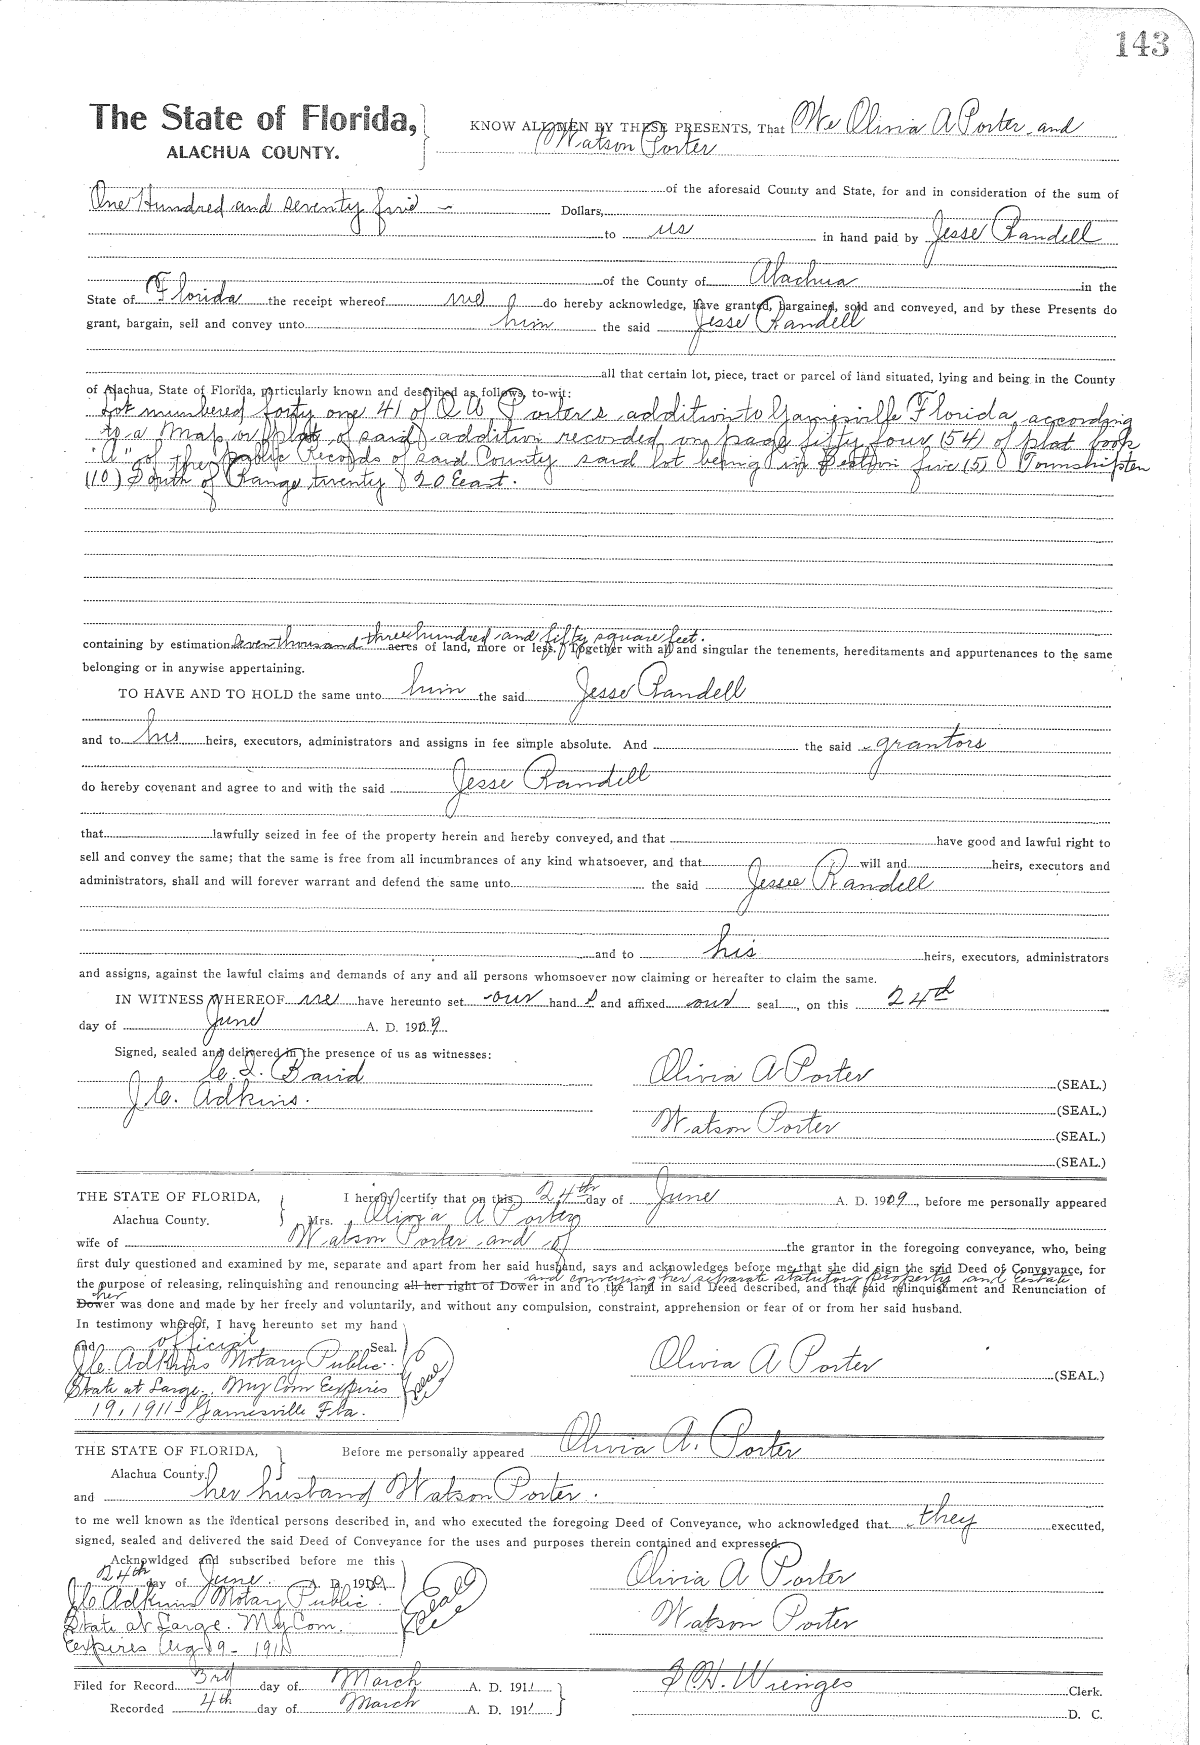 143
The State of Florida, KNOW ALL MEN BY THESE PRESENTS, That We Olivia A Porter and
ALACHUA COUNTY. Watson Porter
of the aforesaid County and State, for and in consideration of the sum of
One Hundred and seventy five Dollars,
to us in hand paid by Jesse Randell
of the County of Alachua in the
State of Florida the receipt whereof we do hereby acknowledge, have granted, bargained, sold and conveyed, and by these Presents do
grant, bargain, sell and convey unto him the said Jesse Randell
all that certain lot, piece, tract or parcel of land situated, lying and being in the County
of Alachua, State of Florida, particularly known and described as follows, to-wit:
Lot numbered forty one 41 of O A Porters addition to Gainesville Florida, according
to a Map or plat of said addition recorded on page fifty four (54) of plat book
"A" of the public Records of said County said lot being in Section five (5) Township ten
(10) South of Range twenty 20 East.
containing by estimation seven thousand three hundred and fifty square feet. acres of land, more or less. Together with all and singular the tenements, hereditaments and appurtenances to the same
belonging or in anywise appertaining.
TO HAVE AND TO HOLD the same unto him the said Jesse Randell
and to his heirs, executors, administrators and assigns in fee simple absolute. And the said grantors
do hereby covenant and agree to and with the said Jesse Randell
that lawfully seized in fee of the property herein and hereby conveyed, and that have good and lawful right to
sell and convey the same; that the same is free from all incumbrances of any kind whatsoever, and that will and heirs, executors and
administrators, shall and will forever warrant and defend the same unto the said Jesse Randell
and to his heirs, executors, administrators
and assigns, against the lawful claims and demands of any and all persons whomsoever now claiming or hereafter to claim the same.
IN WITNESS WHEREOF we have hereunto set our hand s and affixed our seal, on this 24th
day of June A. D. 1909.
Signed, sealed and delivered in the presence of us as witnesses:
C. L. Baird Olivia A Porter (SEAL.)
J. C. Adkins. (SEAL.)
Watson Porter (SEAL.)
(SEAL.)
THE STATE OF FLORIDA, I hereby certify that on this 24th day of June A. D. 1909, before me personally appeared
Alachua County. Mrs. Olivia A Porter
wife of Watson Porter and of the grantor in the foregoing conveyance, who, being
first duly questioned and examined by me, separate and apart from her said husband, says and acknowledges before me that she did sign the said Deed of Conveyance, for
the purpose of releasing, relinquishing and renouncing all her right of Dower and conveying her separate statutory property and Estate in and to the land in said Deed described, and that said relinquishment and Renunciation of
her Dower was done and made by her freely and voluntarily, and without any compulsion, constraint, apprehension or fear of or from her said husband.
In testimony whereof, I have hereunto set my hand
and official Seal.
J. C. Adkins Notary Public Seal Olivia A Porter (SEAL.)
State at Large. My Com Expires
19, 1911 Gainesville Fla.
THE STATE OF FLORIDA, Before me personally appeared Olivia A. Porter
Alachua County.
and her husband Watson Porter.
to me well known as the identical persons described in, and who executed the foregoing Deed of Conveyance, who acknowledged that they executed,
signed, sealed and delivered the said Deed of Conveyance for the uses and purposes therein contained and expressed.
Acknowldged and subscribed before me this
24th day of June. A. D. 1909. Olivia A Porter
J C Adkins Notary Public. Seal
State at Large. My Com. Watson Porter
Expires Aug 19 - 1911
Filed for Record 3rd day of March A. D. 1911 Wienges Clerk.
Recorded 4th day of March A. D. 1911 D. C.